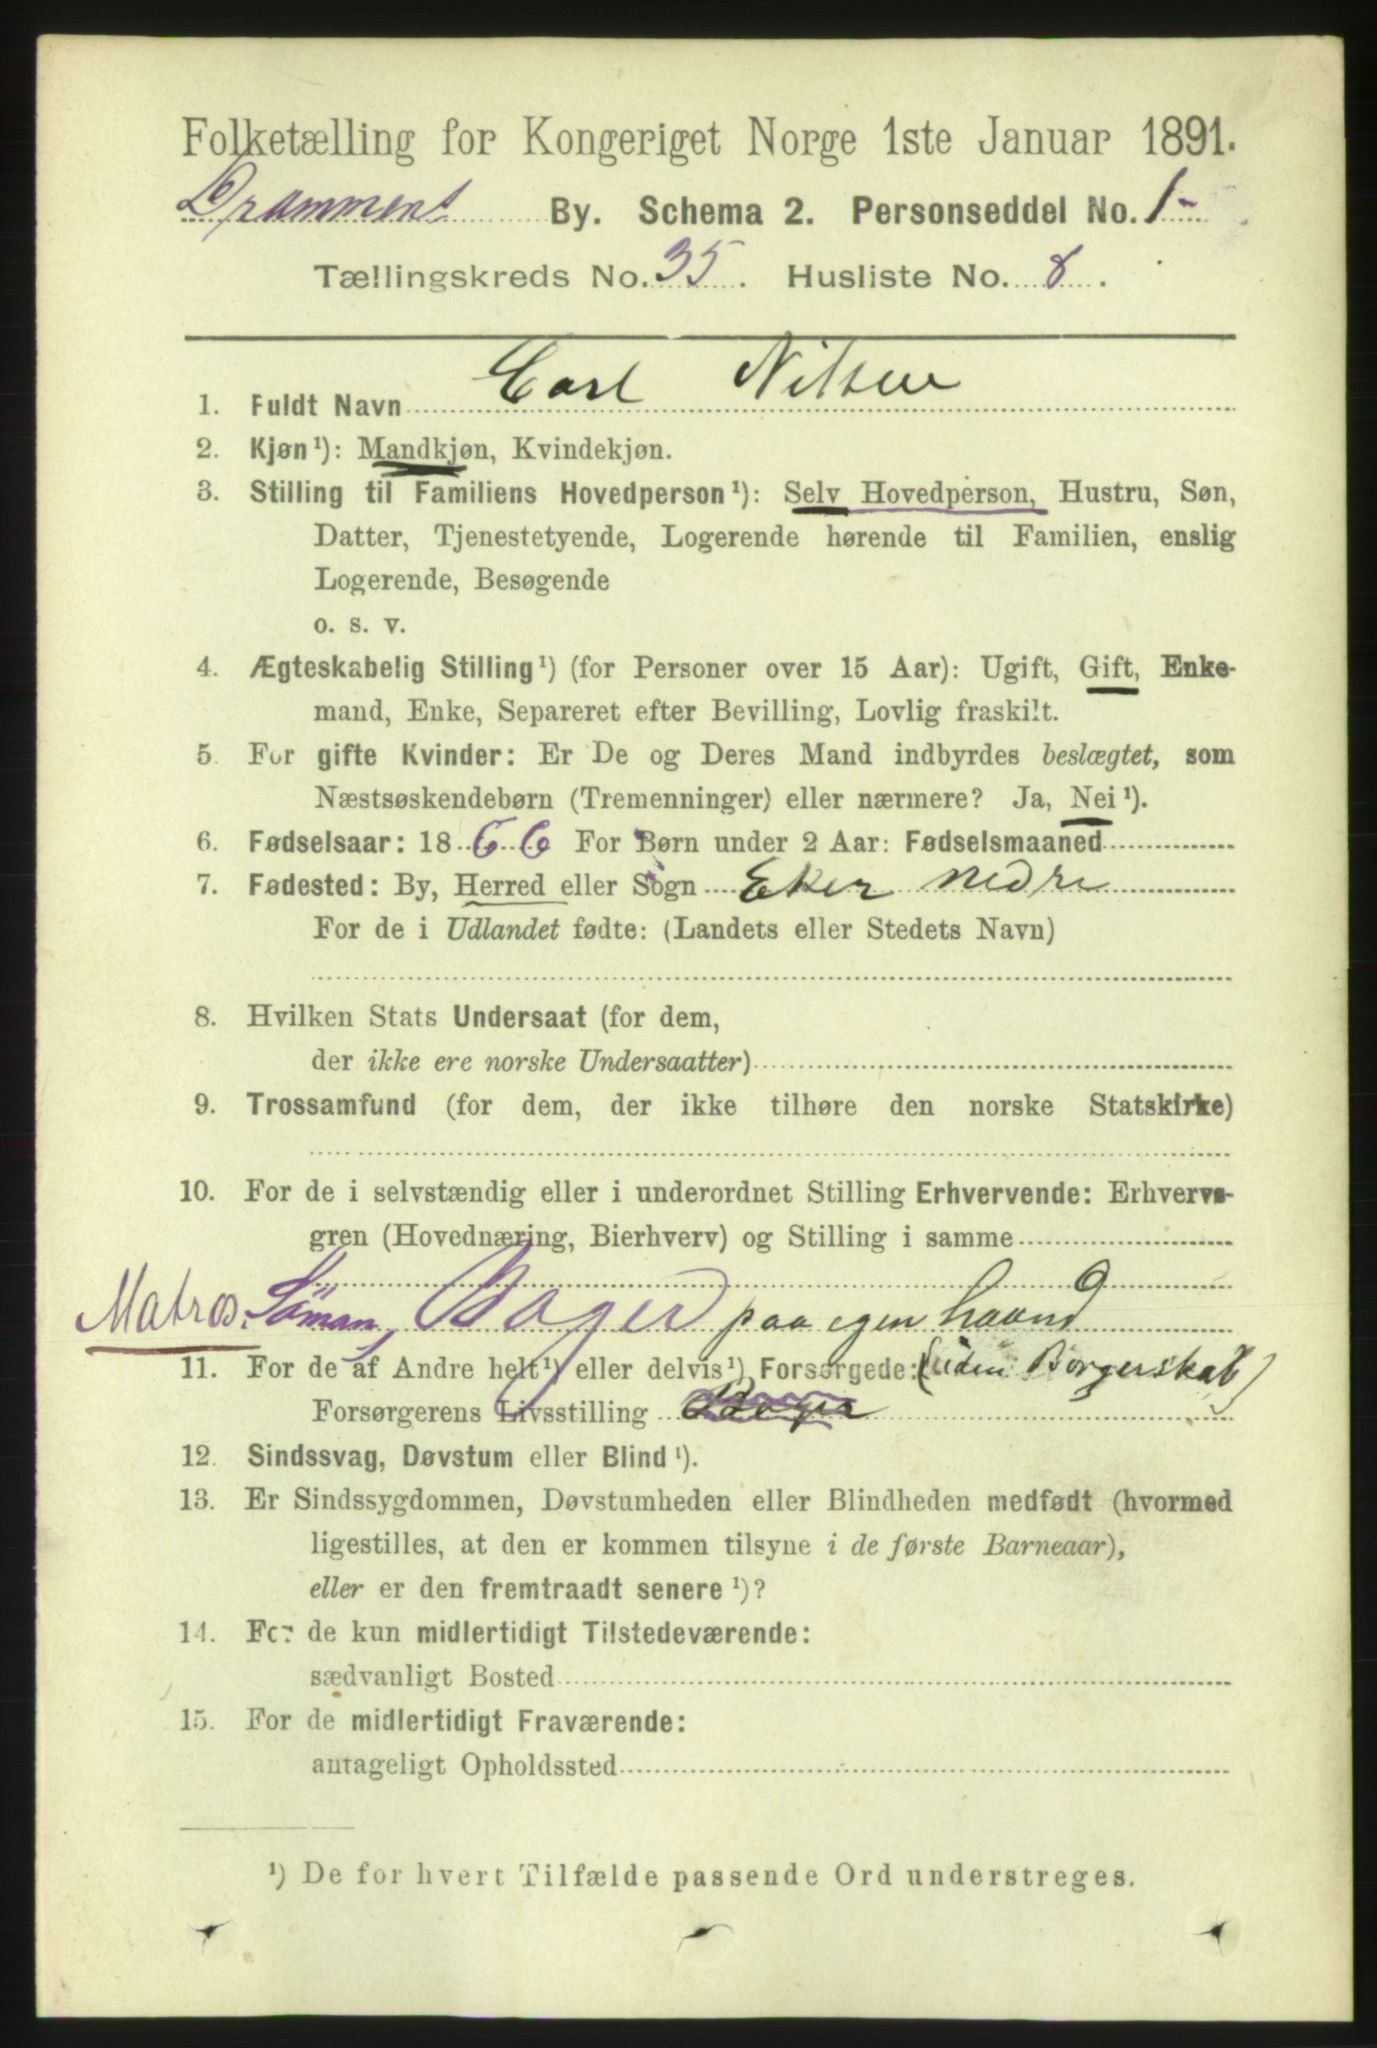 Folketælling for Kongeriget Norge 1ste Januar 1891.
Drammens By. Schema 2. Personseddel No. 1-
Tællingskreds No. 35. Husliste No. 8.
1. Fuldt Navn Carl Nilsen
2. Kjøn¹): Mandkjøn, Kvindekjøn.
3. Stilling til Familiens Hovedperson¹): Selv Hovedperson, Hustru, Søn,
Datter, Tjenestetyende, Logerende hørende til Familien, enslig
Logerende, Besøgende
o. s. v.
4. Ægteskabelig Stilling¹) (for Personer over 15 Aar): Ugift, Gift, Enke-
mand, Enke, Separeret efter Bevilling, Lovlig fraskilt.
5. For gifte Kvinder: Er De og Deres Mand indbyrdes beslægtet, som
Næstsøskendebørn (Tremenninger) eller nærmere? Ja, Nei¹).
6. Fødselsaar: 1866 For Børn under 2 Aar: Fødselsmaaned
7. Fødested: By, Herred eller Sogn Eker nedre
For de i Udlandet fødte: (Landets eller Stedets Navn)
8. Hvilken Stats Undersaat (for dem,
der ikke ere norske Undersaatter)
9. Trossamfund (for dem, der ikke tilhøre den norske Statskirke)
10. For de i selvstændig eller i underordnet Stilling Erhvervende: Erhvervs-
gren (Hovednæring, Bierhverv) og Stilling i samme
Matros. Söman, Bager paa egen haand
11. For de af Andre helt¹) eller delvis¹) Forsørgede: (uden Borgerskab)
Forsørgerens Livsstilling
12. Sindssvag, Døvstum eller Blind¹).
13. Er Sindssygdommen, Døvstumheden eller Blindheden medfødt (hvormed
ligestilles, at den er kommen tilsyne i de første Barneaar),
eller er den fremtraadt senere¹)?
14. For de kun midlertidigt Tilstedeværende:
sædvanligt Bosted
15. For de midlertidigt Fraværende:
antageligt Opholdssted
¹) De for hvert Tilfælde passende Ord understreges.